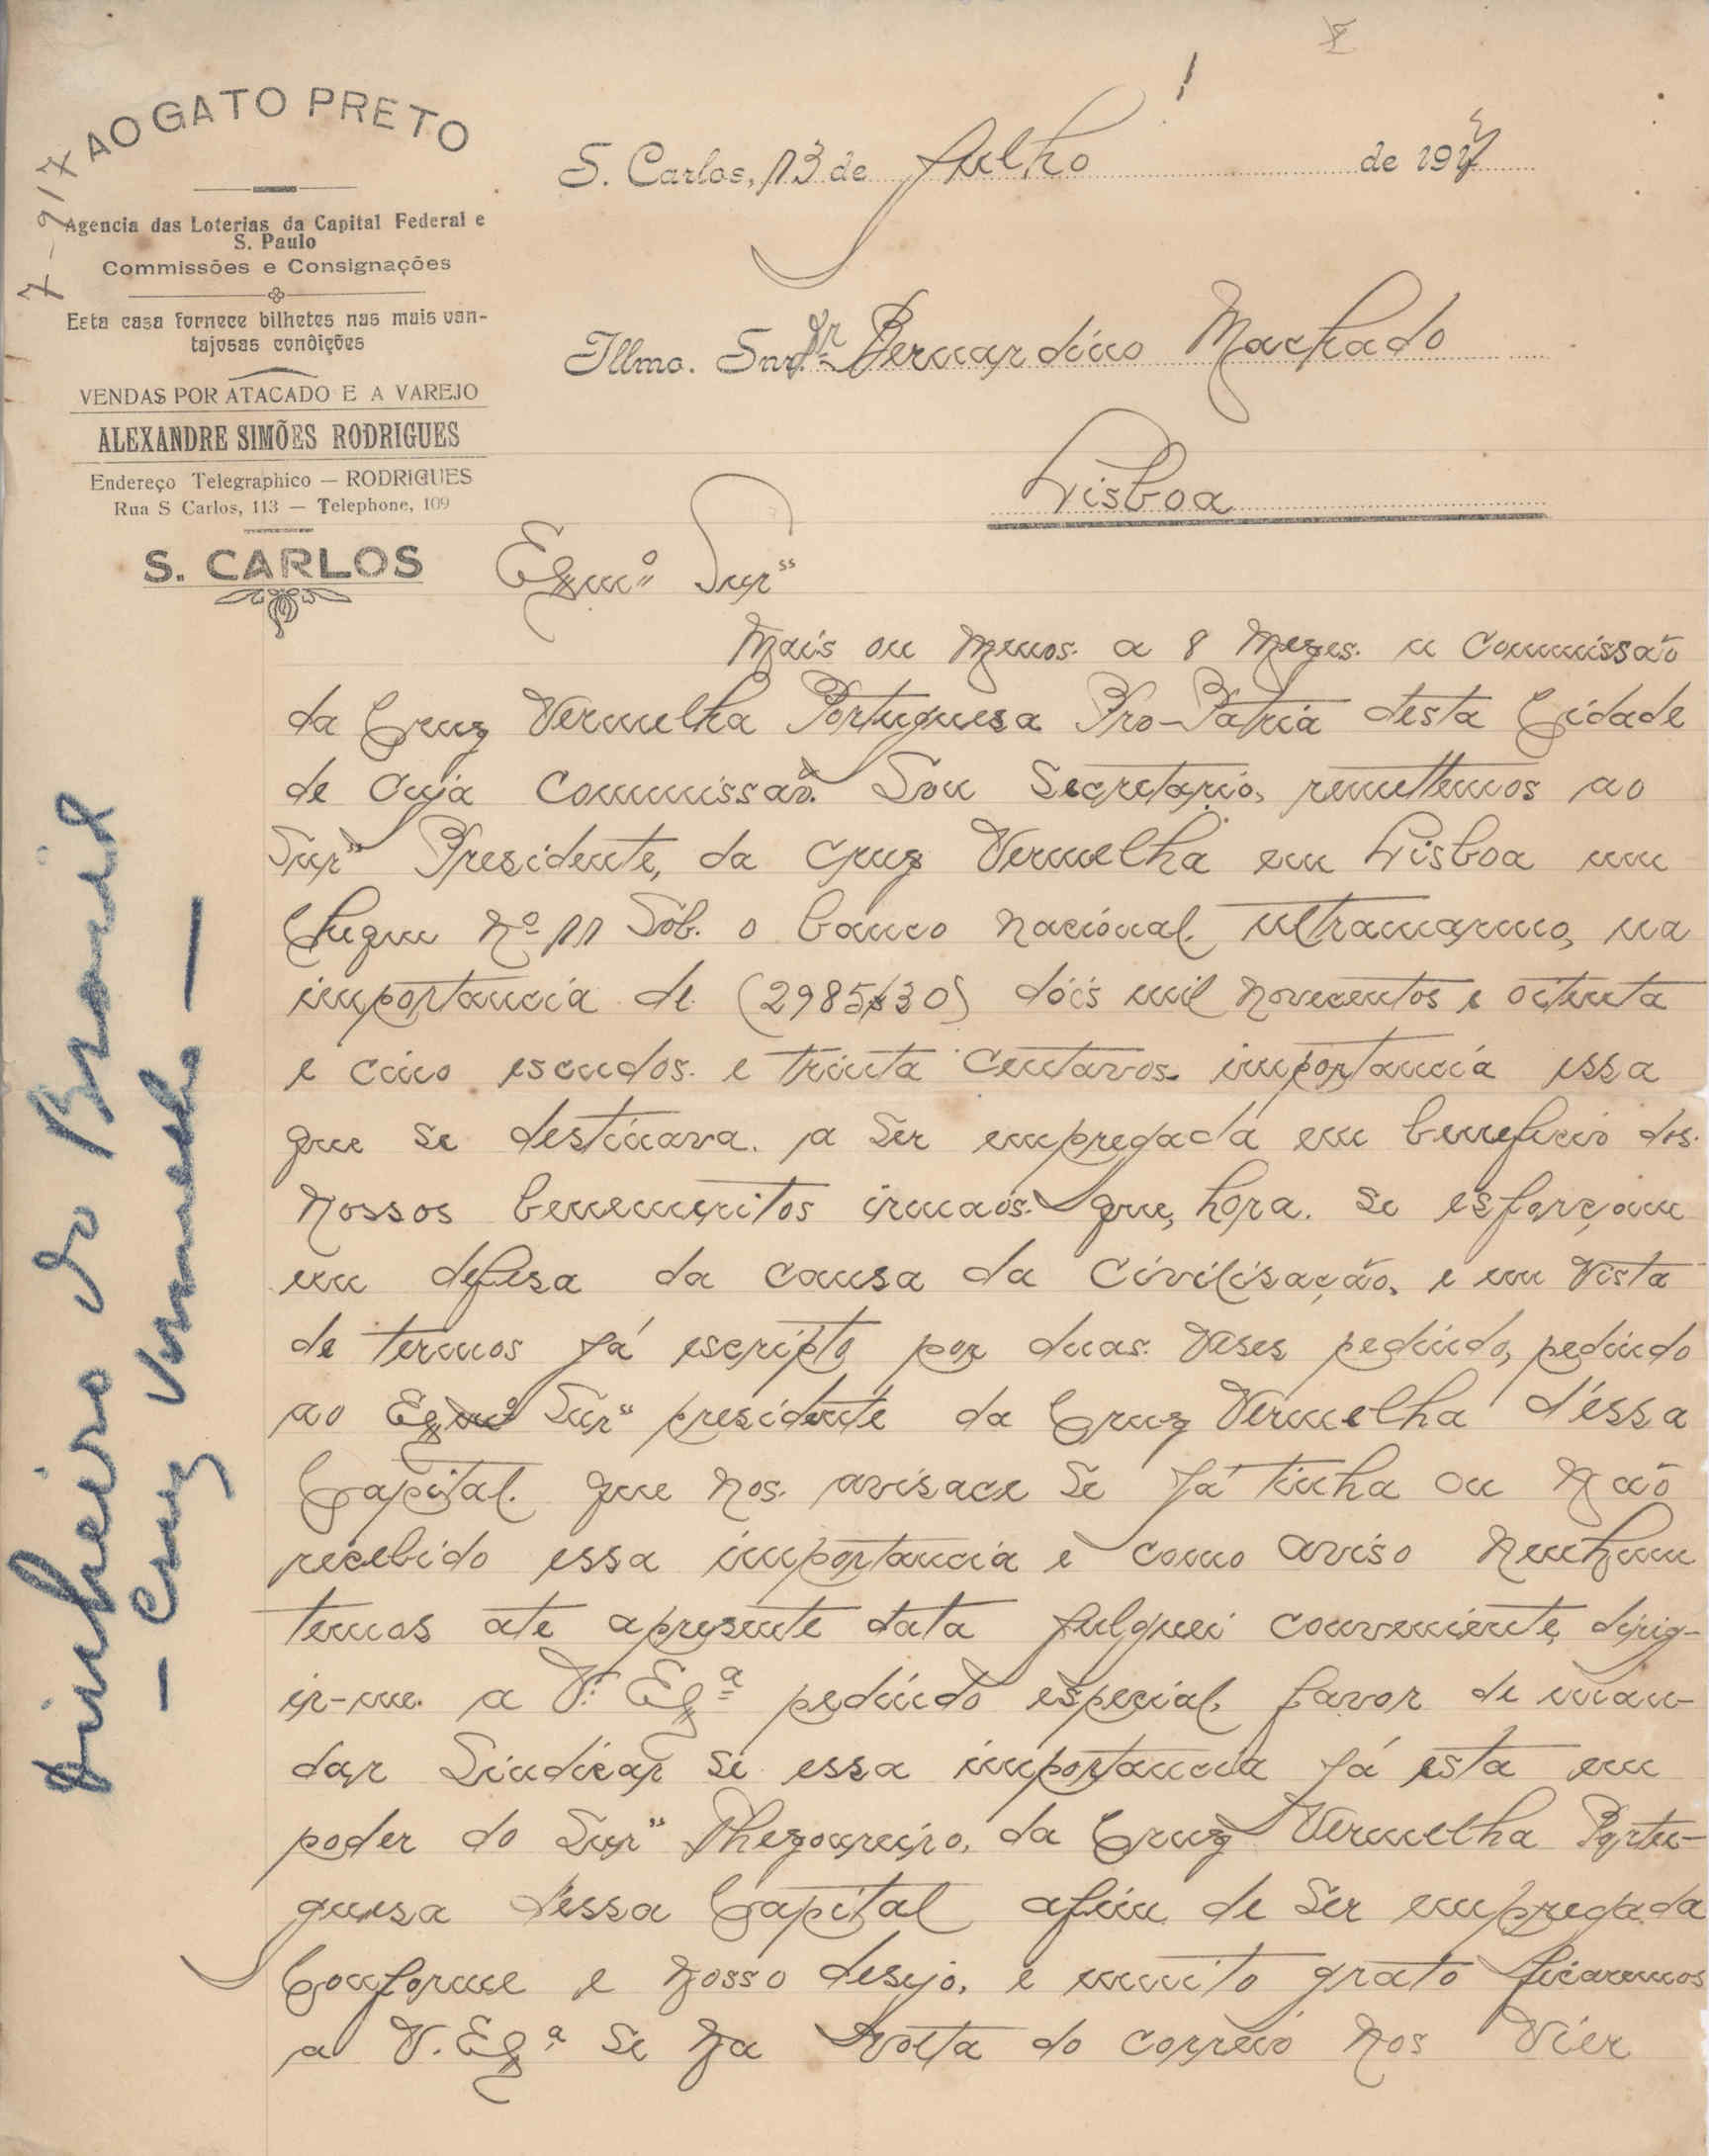 AO GATO PRETO
Agencia das Loterias da Capital Federal e
S. Paulo
Commissões e Consignações
Esta casa fornece bilhetes nas mais van-
tajosas condições
VENDAS POR ATACADO E A VAREJO
ALEXANDRE SIMÕES RODRIGUES
Endereço Telegraphico — RODRIGUES
Rua S Carlos, 113 — Telephone, 109
S. CARLOS
7-917
S. Carlos, 13 de Julho de 1917
Illmo. Snr. Dr Bernardino Machado
Lisboa
Exmº Snr"
Mais ou Menos. a 8 Mezes. a Commissão
da Cruz Vermelha Portuguesa Pro-Patria desta Cidade
de Cuja Commissão Sou Secretario, remettemos ao
Snr" Presidente, da Cruz Vermelha em Lisboa um
Cheque Nº 11 Sob. o banco Nacional. Ultramarino, na
importancia de (2985$30) dois mil Novecentos e oitenta
e cinco escudos. e trinta Centavos. importancia essa
que se destinava. a Ser empregada em beneficio dos.
Nossos benemeritos irmaos. que, hora. se esforçam
em defesa da causa da Civilisação, e em vista
de termos Já escripto por duas. veses pedindo, pedindo
ao Exmº Snr" presidente da Cruz Vermelha d'éssa
Capital. que Nos. avisace Se Já tinha ou Não
recebido essa importancia e como aviso Nenhum
temos ate apresente data Julguei conveniente, dirig-
ir-me. a V. Exª pedindo especial. favor de man-
dar Sindicar se essa importancia Já esta em
poder do Snr" Thezoureiro, da Cruz Vermelha Portu-
guesa d'essa Capital afim de Ser empregada
Conforme e Nosso desejo, e muito grato ficaremos
a V. Exª Se Na Volta do correio Nos Vier
Dinheiro do Brasil
— Cruz Vermelha —